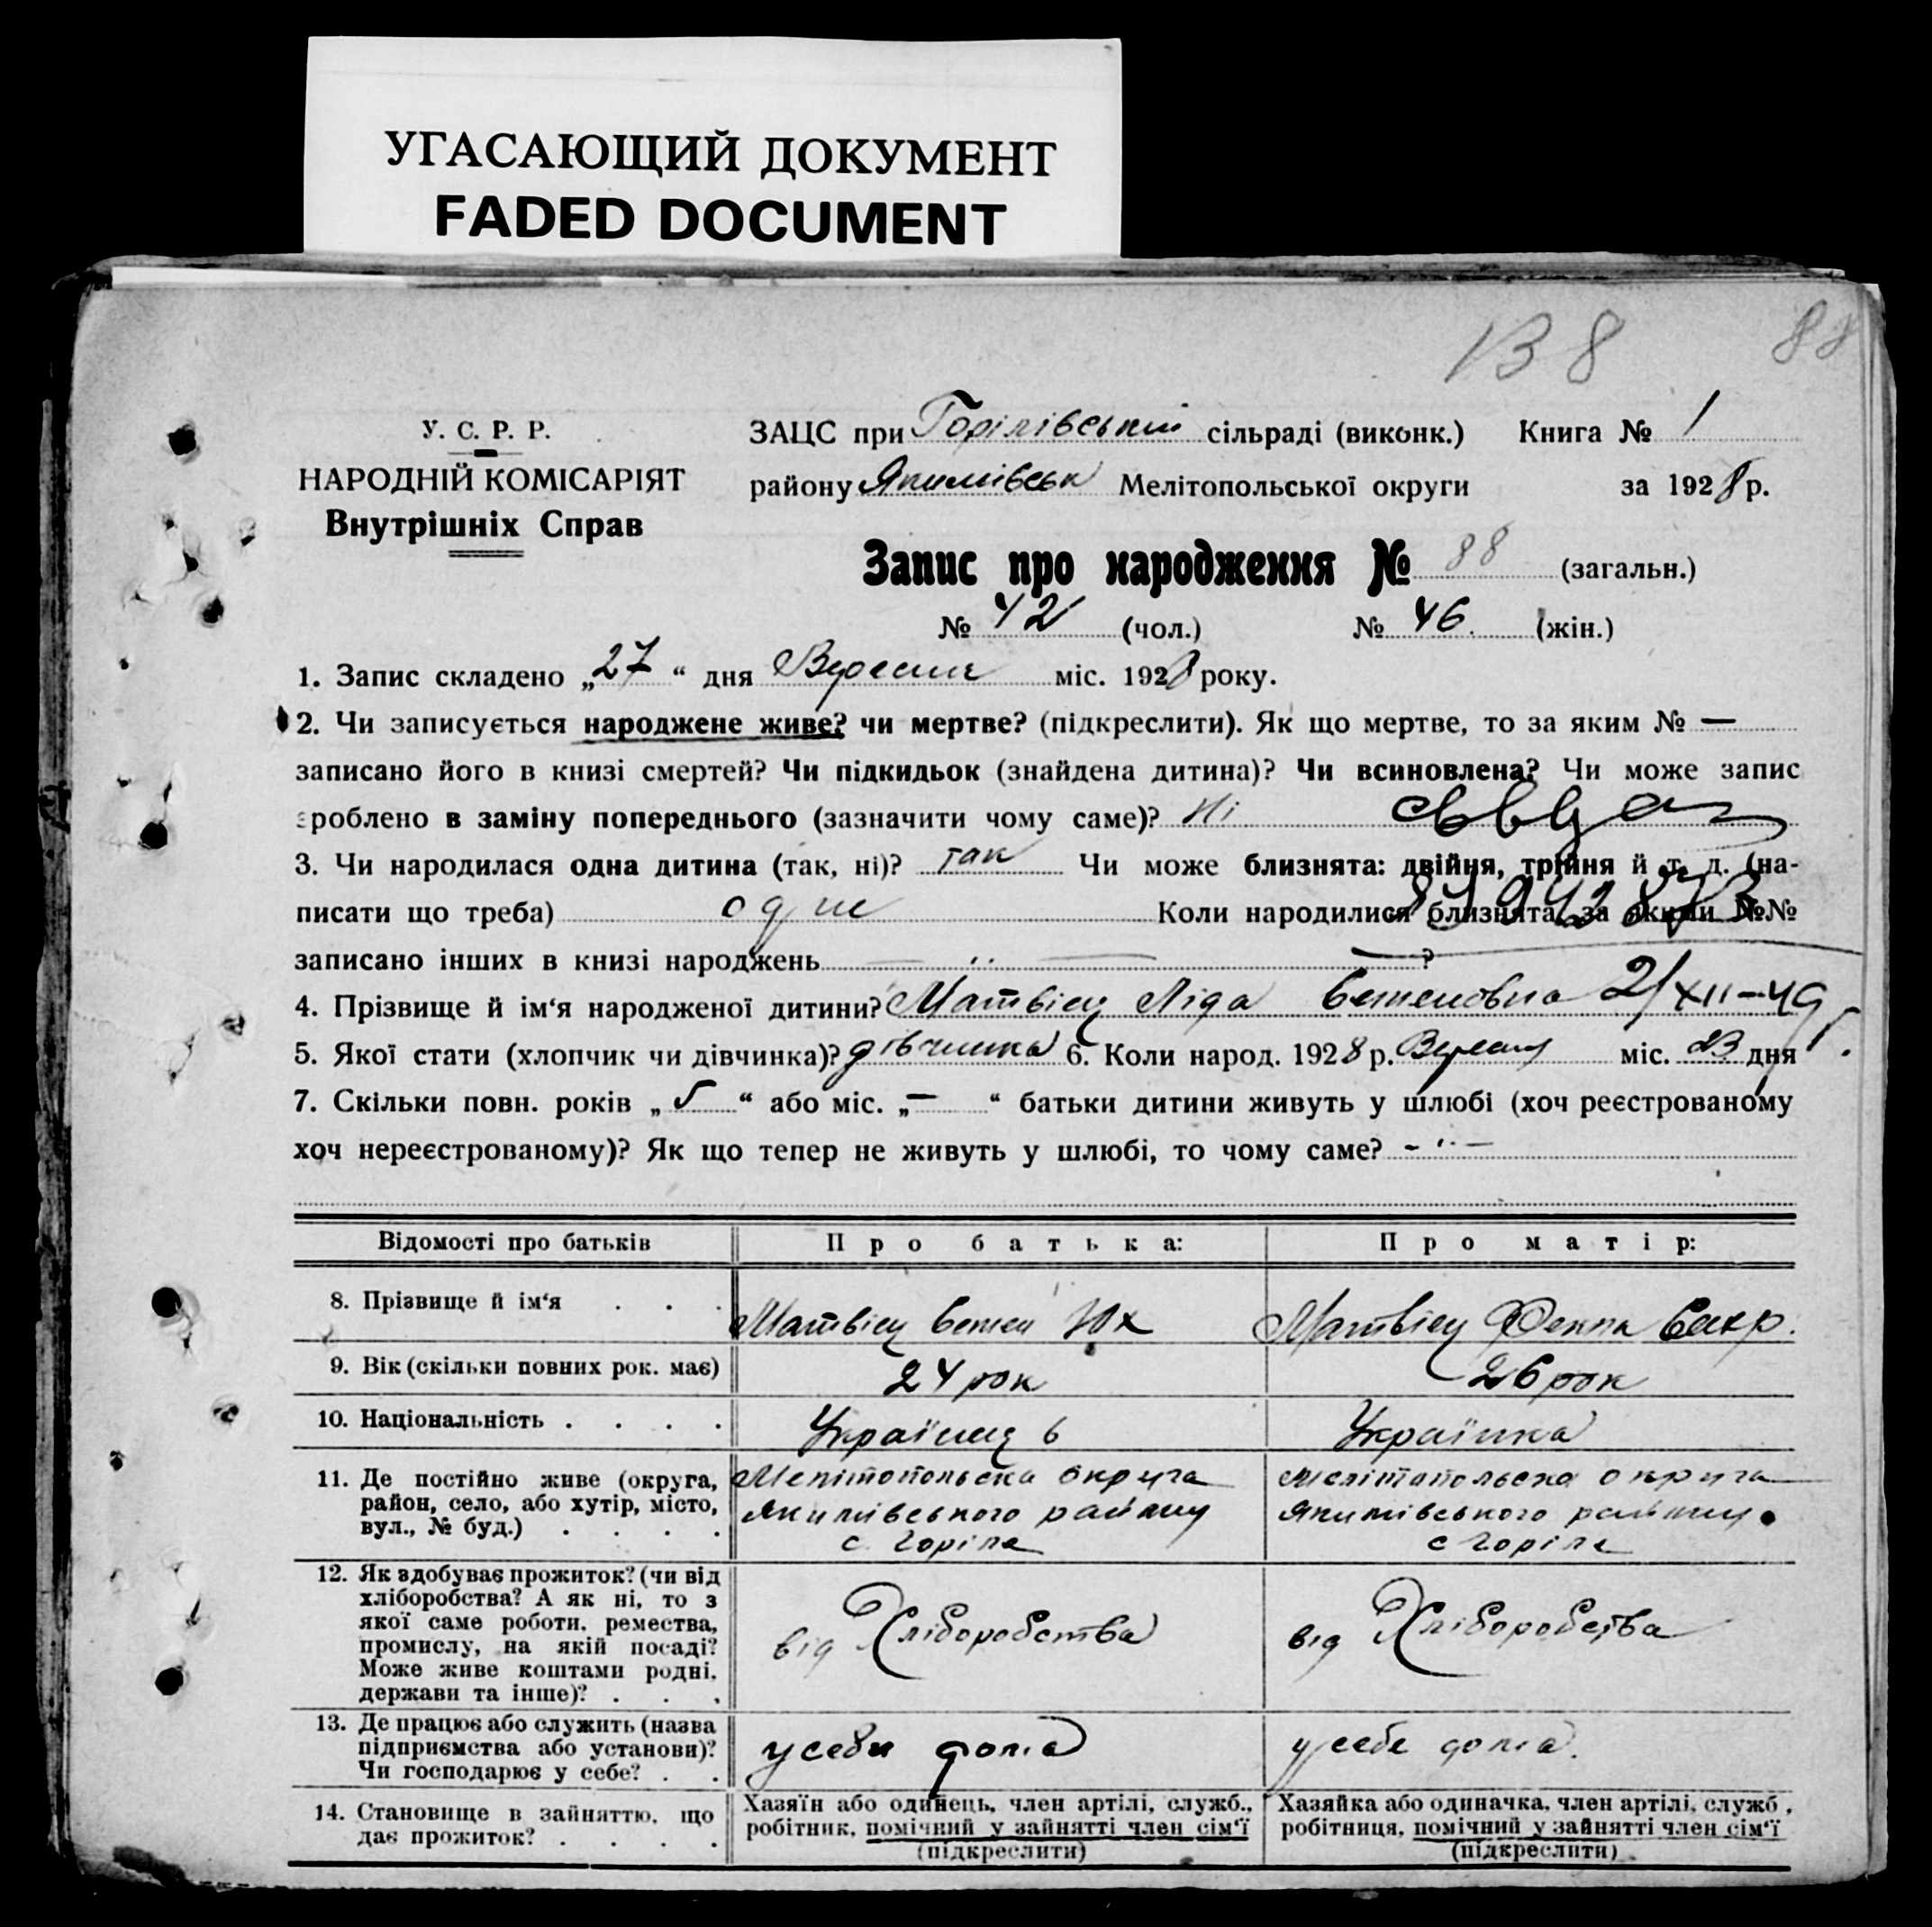 УГАСАЮЩИЙ ДОКУМЕНТ
FADED DOCUMENT
138
88
У. С. Р. Р.
НАРОДНІЙ КОМІСАРІЯТ
Внутрішніх Справ
ЗАЦС при Горілівській сільраді (виконк.) Книга № 1
району Якимівськ Мелітопольської округи за 1928 р.
Запис про народження № 88 (загальн.)
№ 42 (чол.) № 46. (жін.)
1. Запис складено „27“ дня Вересня міс. 1928 року.
2. Чи записується народжене живе? чи мертве? (підкреслити). Як що мертве, то за яким № —
записано його в книзі смертей? Чи підкидьок (знайдена дитина)? Чи всиновлена? Чи може запис
зроблено в заміну попереднього (зазначити чому саме)? Ні
3. Чи народилася одна дитина (так, ні)? так Чи може близнята: двійня, трійня й т. д. (на-
писати що треба) Коли народилися близнята, за якими №№
записано інших в книзі народжень — ·· — — ?
4. Прізвище й ім‘я народженої дитини? Матвієц Ліда Семеновна 21/XII-49 г.
5. Якої стати (хлопчик чи дівчинка)? дівчинка 6. Коли народ. 1928 р. Вересня міс. 23 дня
7. Скільки повн. років „5“ або міс. „—“ батьки дитини живуть у шлюбі (хоч реєстрованому
хоч нереєстрованому)? Як що тепер не живуть у шлюбі, то чому саме? - ·· —
Відомості про батьків Про батька: Про матір:
8. Прізвище й ім‘я . . . Матвієц Семен Юх Матвієц
9. Вік (скільки повних рок. має) 24 рок 26 рок
10. Національність . . . . Українец Українка
11. Де постійно живе (округа, район, село, або хутір, місто, вул., № буд.) . . . .
Мелітопольска округа
Якимівського району
с. Горіле
Мелітопольска округа
Якимівського району
с Горіле
12. Як здобуває прожиток? (чи від
хліборобства? А як ні, то з
якої саме роботи, ремества,
промислу, на якій посаді?
Може живе коштами родні,
держави та інше)? . . .
від Хліборобства
від Хліборобства
13. Де працює або служить (назва
підприємства або установи)?
Чи господарює у себе? . .
у себи дома
у себе дома.
14. Становище в зайняттю, що
дає прожиток? . . . .
Хазяїн або одинець, член артілі, служб.,
робітник, помічний у зайнятті член сім‘ї
(підкреслити)
Хазяйка або одиначка, член артілі, служб,
робітниця, помічний у зайнятті член сім‘ї
(підкреслити)